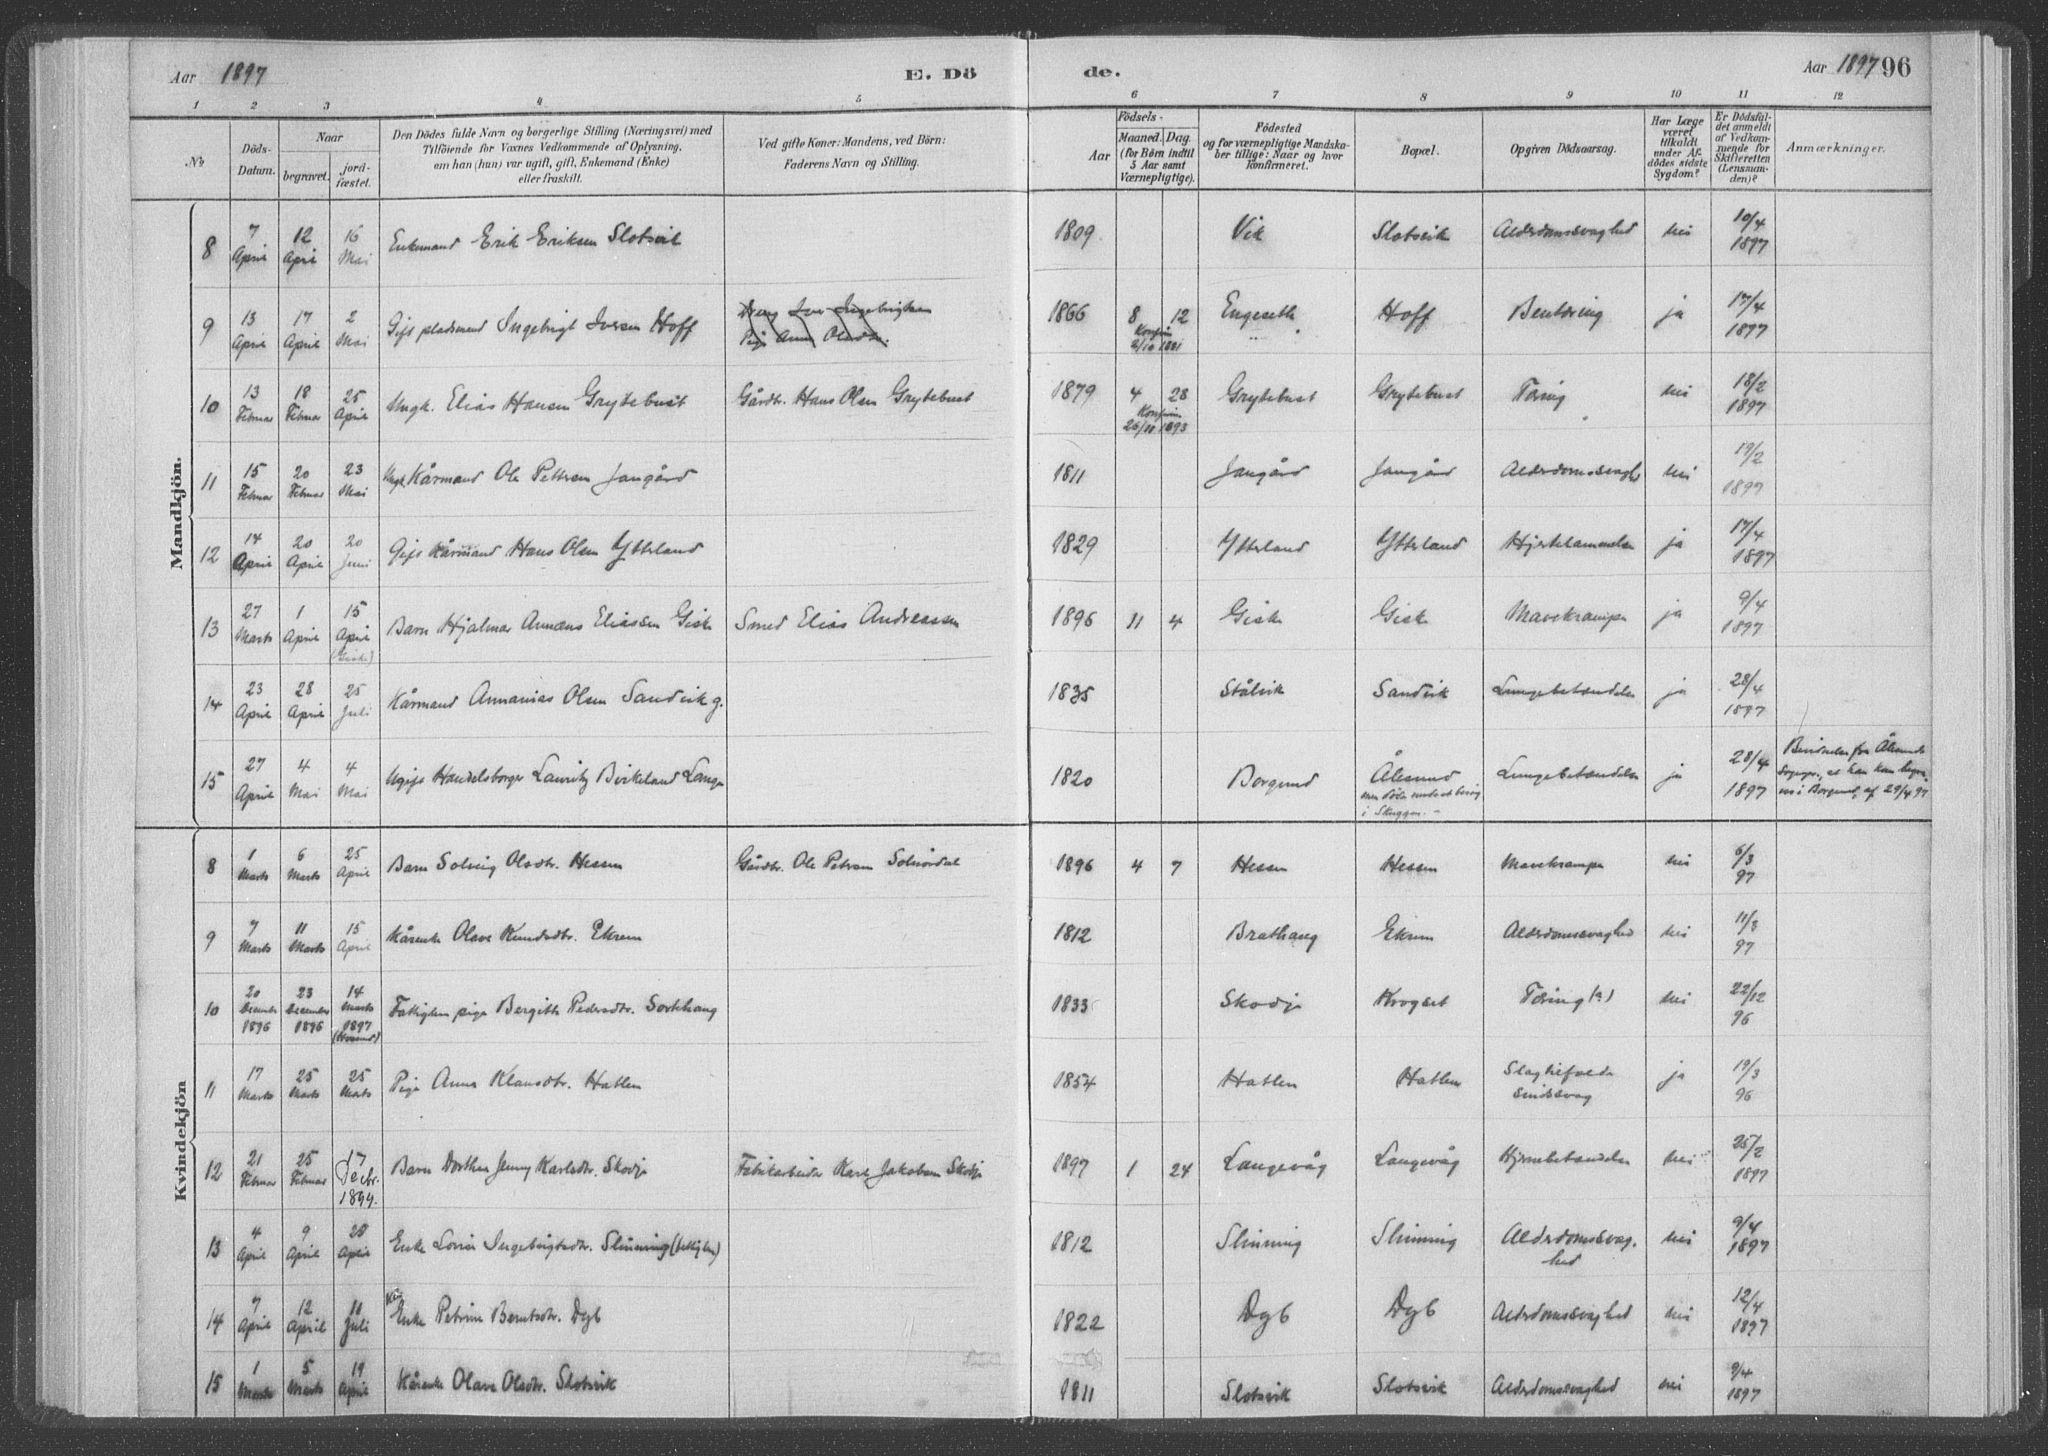 Aar 1897 E. Dö
de. Aar 1897 96
1 2 3 4 5 6 7 8 9 10 11 12
No
Döds-Datum.
Naar
begravet.
jord-fæstet.
Den Dödes fulde Navn og borgerlige Stilling (Næringsvei) med
Tilföiende for Voxnes Vedkommende af Oplysning,
om han (hun) var ugift, gift, Enkemand (Enke)
eller fraskilt.
Ved gifte Koner: Mandens, ved Börn:
Faderens Navn og Stilling.
Födsels-
Aar
Maaned. Dag.
(for Börn indtil
5 Aar samt
Værnepligtige).
Födested
og for værnepligtige Mandska-
ber tillige: Naar og hvor
konfirmeret.
Bopæl.
Opgiven Dödsaarsag.
Har Læge
været
tilkaldt
under Af-
dödes sidste
Sygdom?
Er Dödsfal-
det anmeldt
af Vedkom-
mende for
Skifteretten
(Lensman-
den)?
Anmærkninger.
Mandkjön.
8 7 April 12 April 16 Mai Enkemand Erik Eriksen Slotsvik 1809 Vik Slotsvik Alderdomssvaghed nei 10/4 1897
9 13 April 17 April 2 Mai Gift pladsmand Ingebrigt Iversen Hoff 1866 8 12 Konfirm 2/10 1881 Engeseth Hoff Bentæring ja 17/4 1897
10 13 Februar 18 Februar 25 April Ungk. Elias Hansen Grytebust Gårdbr. Hans Olsen Grytebust 1879 4 28 Konfirm 1893 Grytebust Grytebust Tæring nei 18/2 1897
11 15 Februar 20 Februar 23 Mai Ungk. Kårmand Ole Pettersen Jangård 1811 Jangård Jangård Alderdomssvaghd nei 19/2 1897
12 14 April 20 April 20 Juni Gift Kårmand Hans Olsen Ytterland 1829 Ytterland Ytterland Hjertelammelse ja 17/4 1897
13 27 Marts 1 April 15 April (Giske) Barn Hjalmar Annæus Eliassen Giske Smed Elias Andreassen 1896 11 4 Giske Giske Mavekrampe ja 9/4 1897
14 23 April 28 April 25 Juli Kårmand Annanias Olsen Sandvik g. 1835 Stålvik Sandvik Lungebetændelse ja 28/4 1897
15 27 April 4 Mai 4 Mai Ugift Handelsborger Lauritz Birkeland Lange 1820 Borgund Ålesund
i Skuggen. Lungebetændelse ja 28/4 1897 Ålesunds
Sogepr., at han kan
i Borgund, af 29/4 97
Kvindekjön
8 1 Marts 6 Marts 25 April Barn Solveig Olsdtr. Hessen Gårdbr. Ole Petersen Solnørdal 1896 4 7 Hessen Hessen Mavekrampe nei 6/3 97
9 7 Marts 11 Marts 15 April Kårenke Olave Knudsdtr. Ekrem 1812 Brathaug Ekrem Alderdomssvaghed nei 11/3 97
10 20 December 1896 23 December 1896 14 Marts 1897 Fattiglem pige Bergitte Pedersdtr. Sortehaug 1833 Skodje Krogset Tæring (?) nei 22/12 96
11 17 Marts 25 Marts 25 Marts Pige Anna Klausdtr. Hatlen 1854 Hatlen Hatlen Slagtilfælde
sindssvag ja 19/3 96
12 21 Februar 25 Februar 17 Decbr. 1899. Barn Dorthea Jenny Karlsdtr. Skodje Fabrikarbeider Karl Jakobsen Skodje 1897 1 24 Langevåg Langevåg Hjernebetændelse nei 25/2 1897
13 4 April 9 April 28 April Enke Lovise Ingebrigtsdtr. Slinning (fattiglem) 1812 Slinning Slinning Alderdomssvag-
hed nei 9/4 1897
14 7 April 12 April 11 Juli Enke Petrine Berntsdtr. Dyb 1822 Dyb Dyb Alderdomssvaghed nei 12/4 1897
15 1 Marts 5 Marts 19 April Kårenke Olave Olsdtr. Slotsvik 1811 Slotsvik Slotsvik Alderdomssvaghed nei 9/4 1897